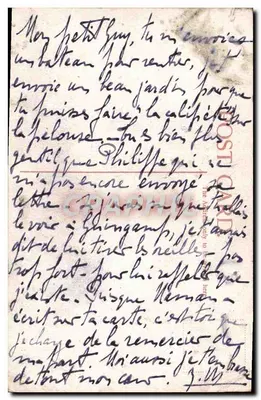 Mon petit Guy, tu m'envoies
un bateau pour rentrer, je t'
envoie un beau jardin pour que
tu puisses faire la
la pelouse. Tu es bien plus
gentil que Philippe qui
m'a pas encore envoyé sa
lettre. Si que tu allais
le voir à Guingamp, je t'aurais
dit de lui tirer les oreilles, pas
trop fort, pour lui rappeler que
j'existe. Puisque Maman a
écrit sur ta carte, c'est toi que
je charge de la remercier de
ma part. Moi aussi je t'embrasse
de tout mon cœur
POST CARD